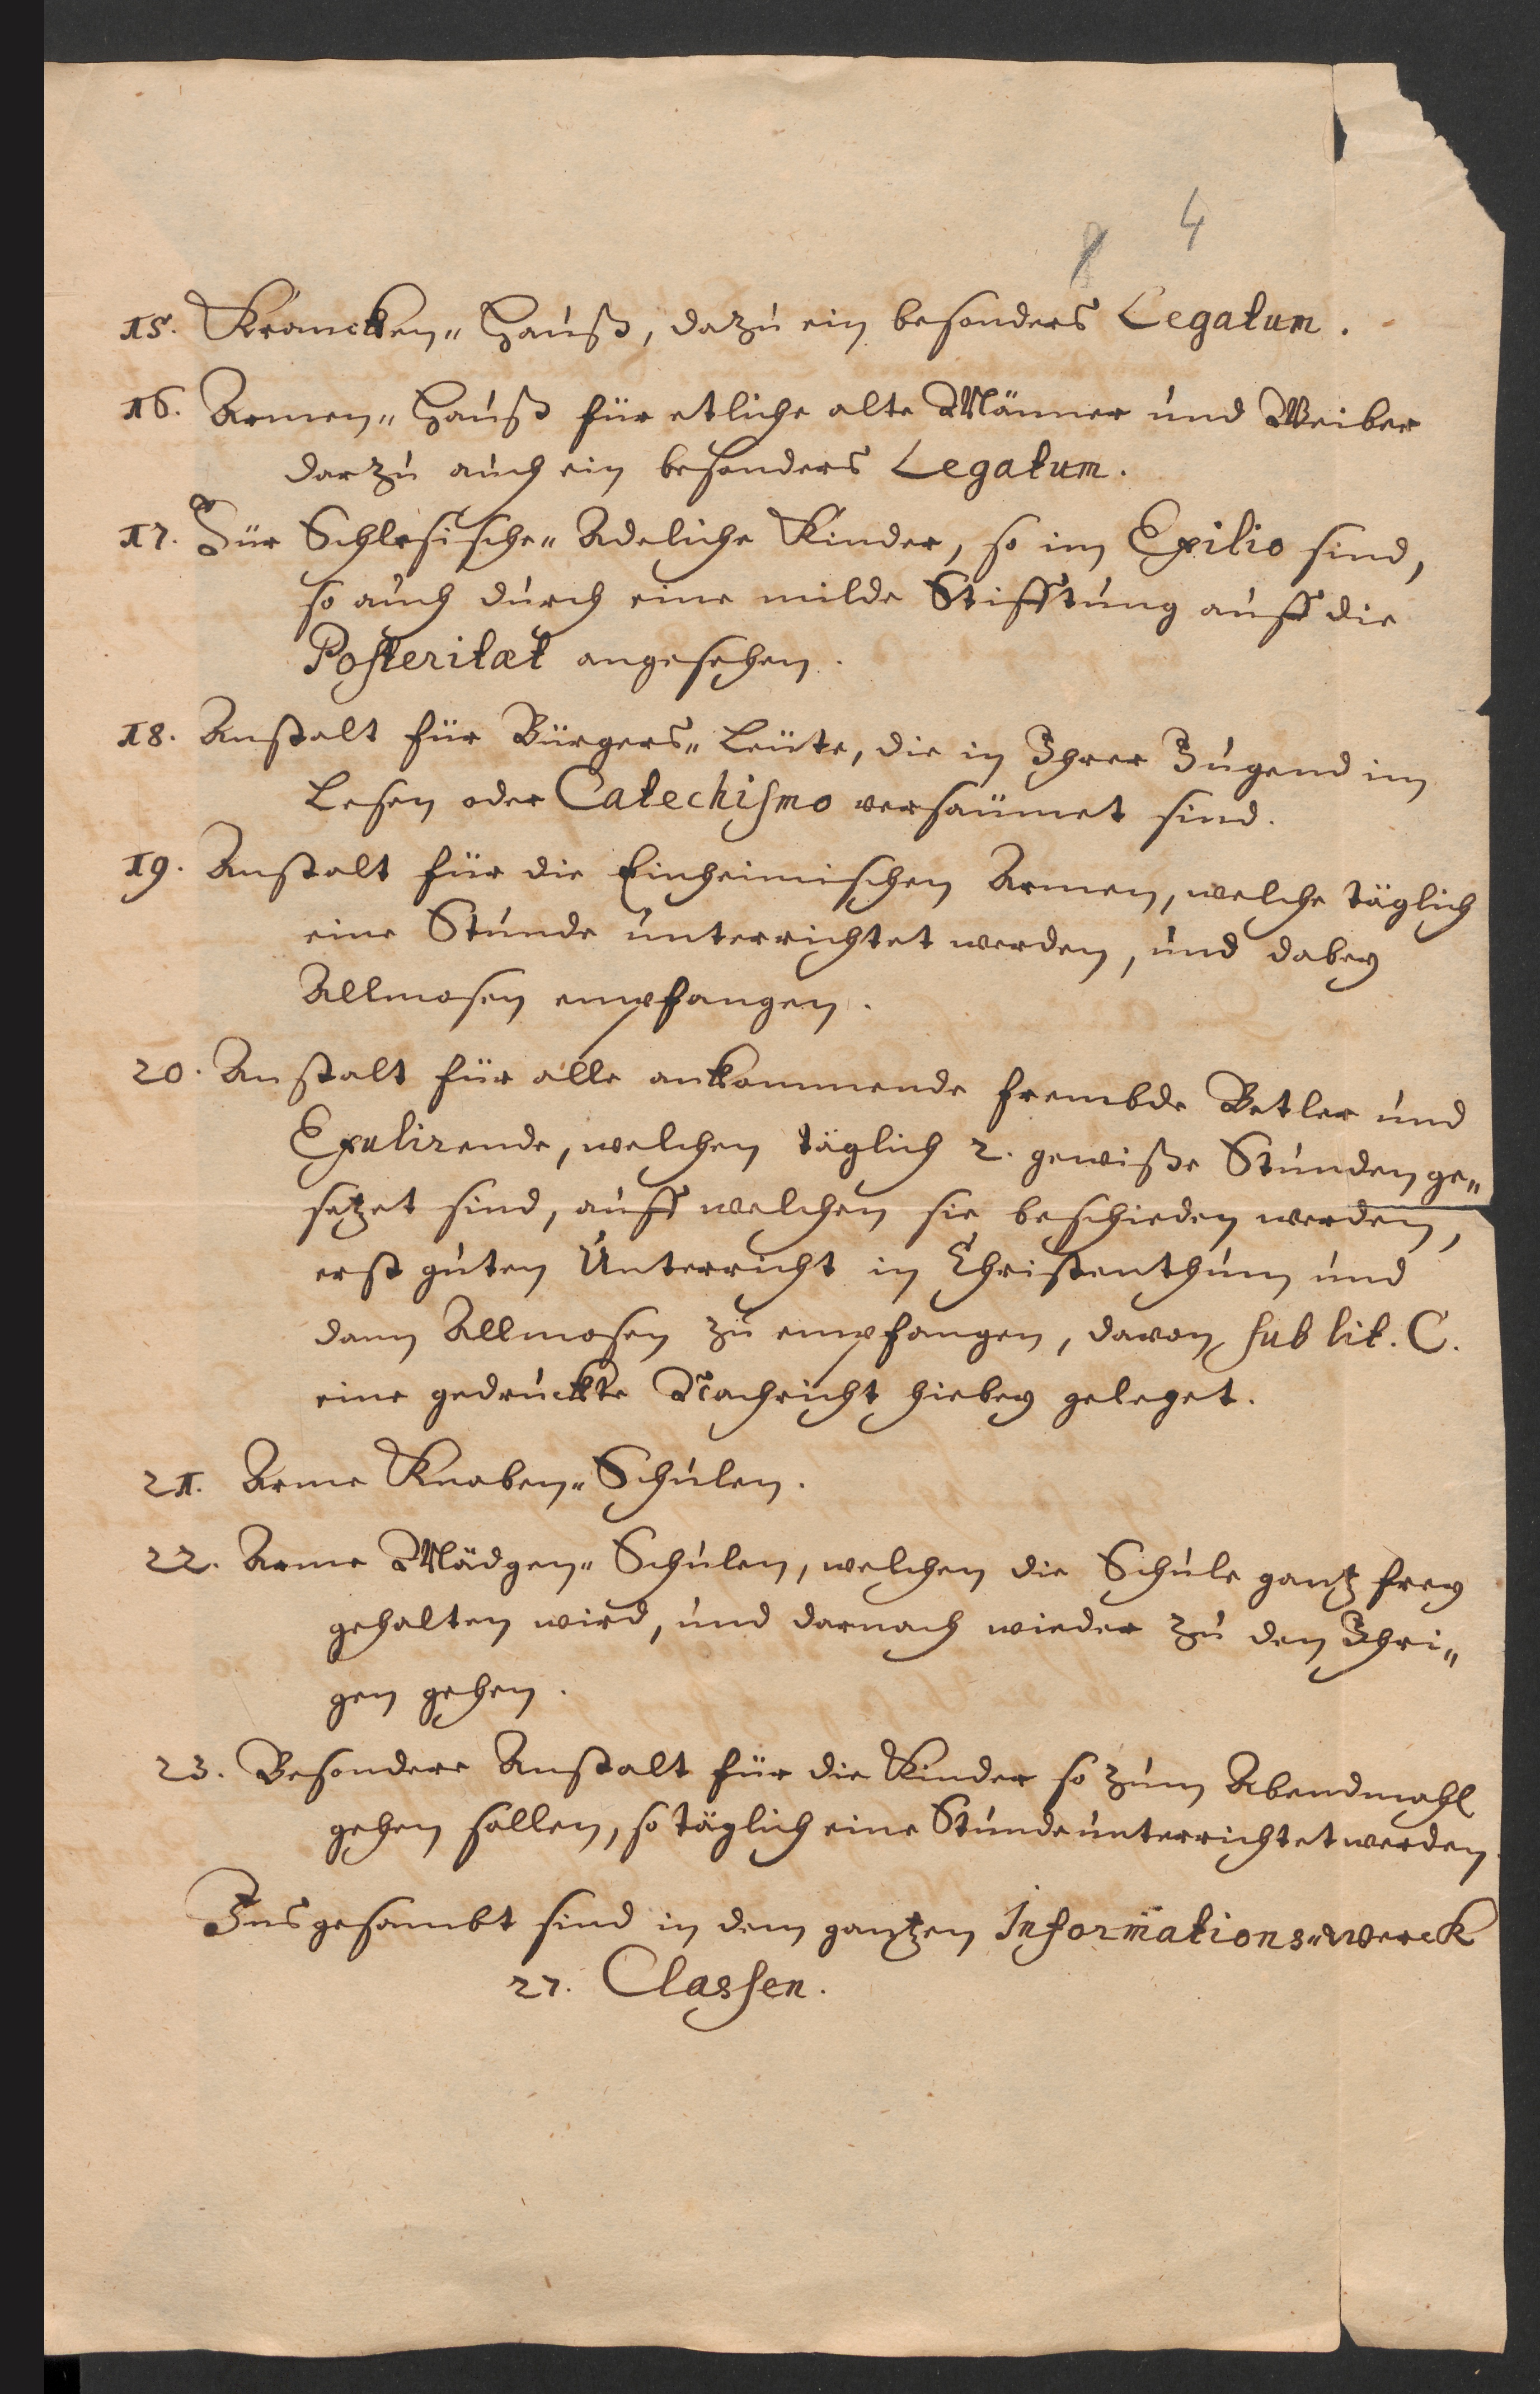 8 4
15. Krancken„ Hauß, dazu ein besonders Legatum.
16. Armen„ Hauß für etliche alte Männer und Weiber
darzu auch ein besonders Legatum.
17. Für Schlesische„ Adeliche Kinder, so im Exilio sind,
so auch durch eine milde Stifftung auff die
Posteritæt angesehen.
18. Anstalt für Bürgers„ Leüte, die in Ihrer Jugend im
Lesen oder Catechismo versäumet sind.
19. Anstalt für die Einheimischen Armen, welche täglich
eine Stunde unterrichtet werden, und dabey
Allmosen empfangen.
20. Anstalt für alle ankommende frembde Betler und
Exulirende, welchen täglich 2. gewiße Stunden ge„
setzet sind, auff welchen sie beschieden werden,
erst guten Unterricht in Christenthum und
dann Allmosen zu empfangen, davon sub lit. C.
eine gedruckte Nachricht hiebey geleget.
21. Arme Knaben„ Schulen.
22. Arme Mädgen„ Schulen, welchen die Schule gantz frey
gehalten wird, und darnach wieder zu den Ihri„
gen gehen.
23. Besondere Anstalt für die Kinder so zum Abendmahl
gehen sollen, so täglich eine Stunde unterrichtet werden.
Insgesambt sind in dem gantzen Informations„werck
27. Classen.